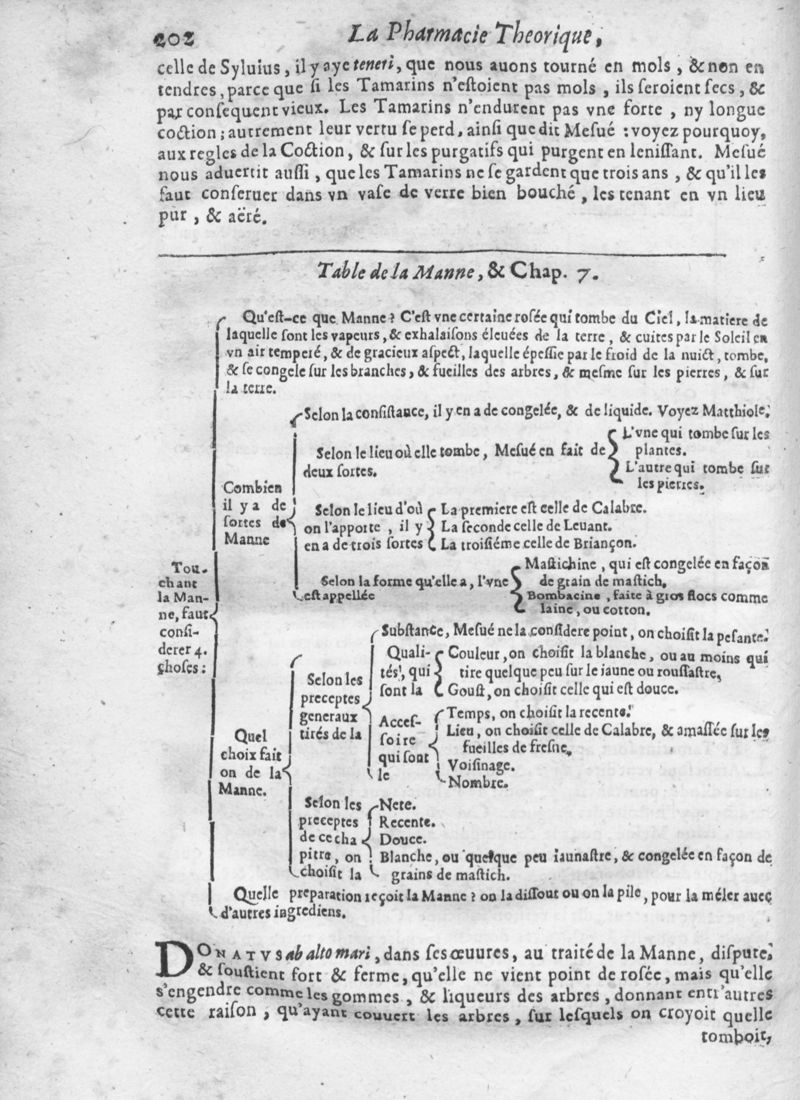 202 La Pharmacie Theorique,
celle de Syluius, il y aye teneri, que nous auons tourné en mols, & non en
tendres, parce que ſi les Tamarins n'eſtoient pas mols, ils ſeroient ſecs, &
par conſequent vieux. Les Tamarins n'endurent pas vne forte, ny longue
coction; autrement leur vertu ſe perd, ainſi que dit Meſué : voyez pourquoy,
aux regles de la Coction, & ſur les purgatifs qui purgent en leniſſant. Meſué
nous aduertit auſſi, que les Tamarins ne ſe gardent que trois ans, & qu'il les
faut conſeruer dans vn vaſe de verre bien bouché, les tenant en vn lieu
pur, & aëré.
Table de la Manne, & Chap. 7.
Qu'eſt-ce que Manne? C'eſt vne certaine roſée qui tombe du Ciel, la matiere de
laquelle ſont les vapeurs, & exhalaiſons éleuées de la terre, & cuites par le Soleil en
vn air temperé, & de gracieux aſpect, laquelle épeſſie par le froid de la nuict, tombe,
& ſe congele ſur les branches, & fueilles des arbres, & meſme ſur les pierres, & ſur
la terre.
Selon la conſiſtance, il y en a de congelée, & de liquide. Voyez Matthiole.
Selon le lieu où elle tombe, Meſué en fait de
deux ſortes.
L'vne qui tombe ſur les
plantes.
L'autre qui tombe ſur
les pierres.
Combien
il y a de
ſortes de
Manne
Selon le lieu d'où
on l'apporte, il y
en a de trois ſortes
La premiere eſt celle de Calabre.
La ſeconde celle de Leuant.
La troiſiéme celle de Briançon.
Selon la forme qu'elle a, l'vne
eſt appellée
Maſtichine, qui eſt congelée en façon
de grain de maſtich.
Bombacine, faite à gros flocs comme
laine, ou cotton.
Tou-
chant
la Man-
ne, faut
conſi-
derer 4.
choſes:
Quel
choix fait
on de la
Manne.
Selon les
preceptes
generaux
tirés de la
Subſtance, Meſué ne la conſidere point, on choiſit la peſante.
Quali-
tés, qui
ſont la
Couleur, on choiſit la blanche, ou au moins qui
tire quelque peu ſur le iaune ou rouſſaſtre,
Gouſt, on choiſit celle qui eſt douce.
Acceſ-
ſoire
qui ſont
le
Temps, on choiſit la recente.
Lieu, on choiſit celle de Calabre, & amaſſée ſur les
fueilles de freſne,
Voiſinage.
Nombre.
Selon les
preceptes
de ce cha
pitre, on
choiſit la
Nete.
Recente.
Douce.
Blanche, ou quelque peu iaunaſtre, & congelée en façon de
grains de maſtich.
Quelle preparation reçoit la Manne? on la diſſout ou on la pile, pour la méler auec
d'autres ingrediens.
DONATVS ab alto mari, dans ſes œuures, au traité de la Manne, diſpute,
& ſouſtient fort & ferme, qu'elle ne vient point de roſée, mais qu'elle
s'engendre comme les gommes, & liqueurs des arbres, donnant entr'autres
cette raiſon, qu'ayant couuert les arbres, ſur leſquels on croyoit quelle
tomboit,